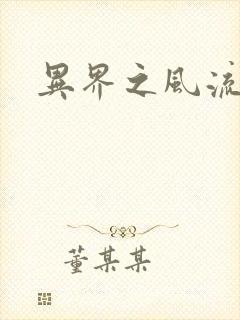 異界之風流
董某某